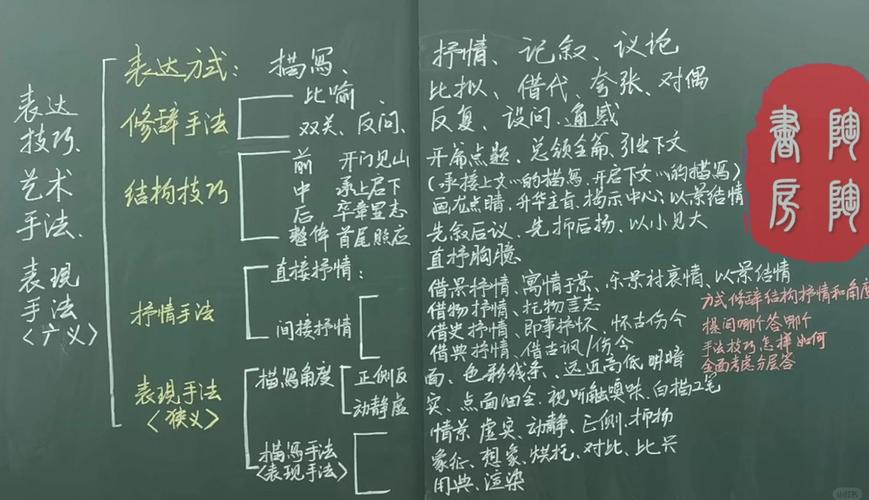 表达
技巧、
艺术
手法、
表现
手法
〈广义〉
表达方式：描写、抒情、记叙、议论
修辞手法
比喻、比拟、借代、夸张、对偶
双关、反问、反复、设问、通感
结构技巧
前 开门见山 开篇点题、总领全篇、引出下文
中 承上启下 (承接上文…的描写，开启下文…的描写)
后 卒章显志 画龙点睛、升华主旨、揭示中心；以景结情
整体 首尾照应 先叙后议、先抑后扬、以小见大
抒情手法
直接抒情：直抒胸臆
间接抒情
借景抒情、寓情于景、乐景衬哀情、以景结情
借物抒情、托物言志
借史抒情、即事抒怀、怀古伤今
借典抒情、借古讽/伤今
表现手法
〈狭义〉
描写角度
正侧反面、色彩线条、远近高低明暗
动静虚实、点面细全、视听触嗅味、白描工笔
描写手法
〈表现手法〉
情景 虚实、动静、正侧、抑扬
象征、想象、烘托、对比、比兴
用典、渲染
方式修辞结构抒情和角度
提问哪个答哪个
手法技巧怎样如何
全面考虑分层答
陶陶
書房